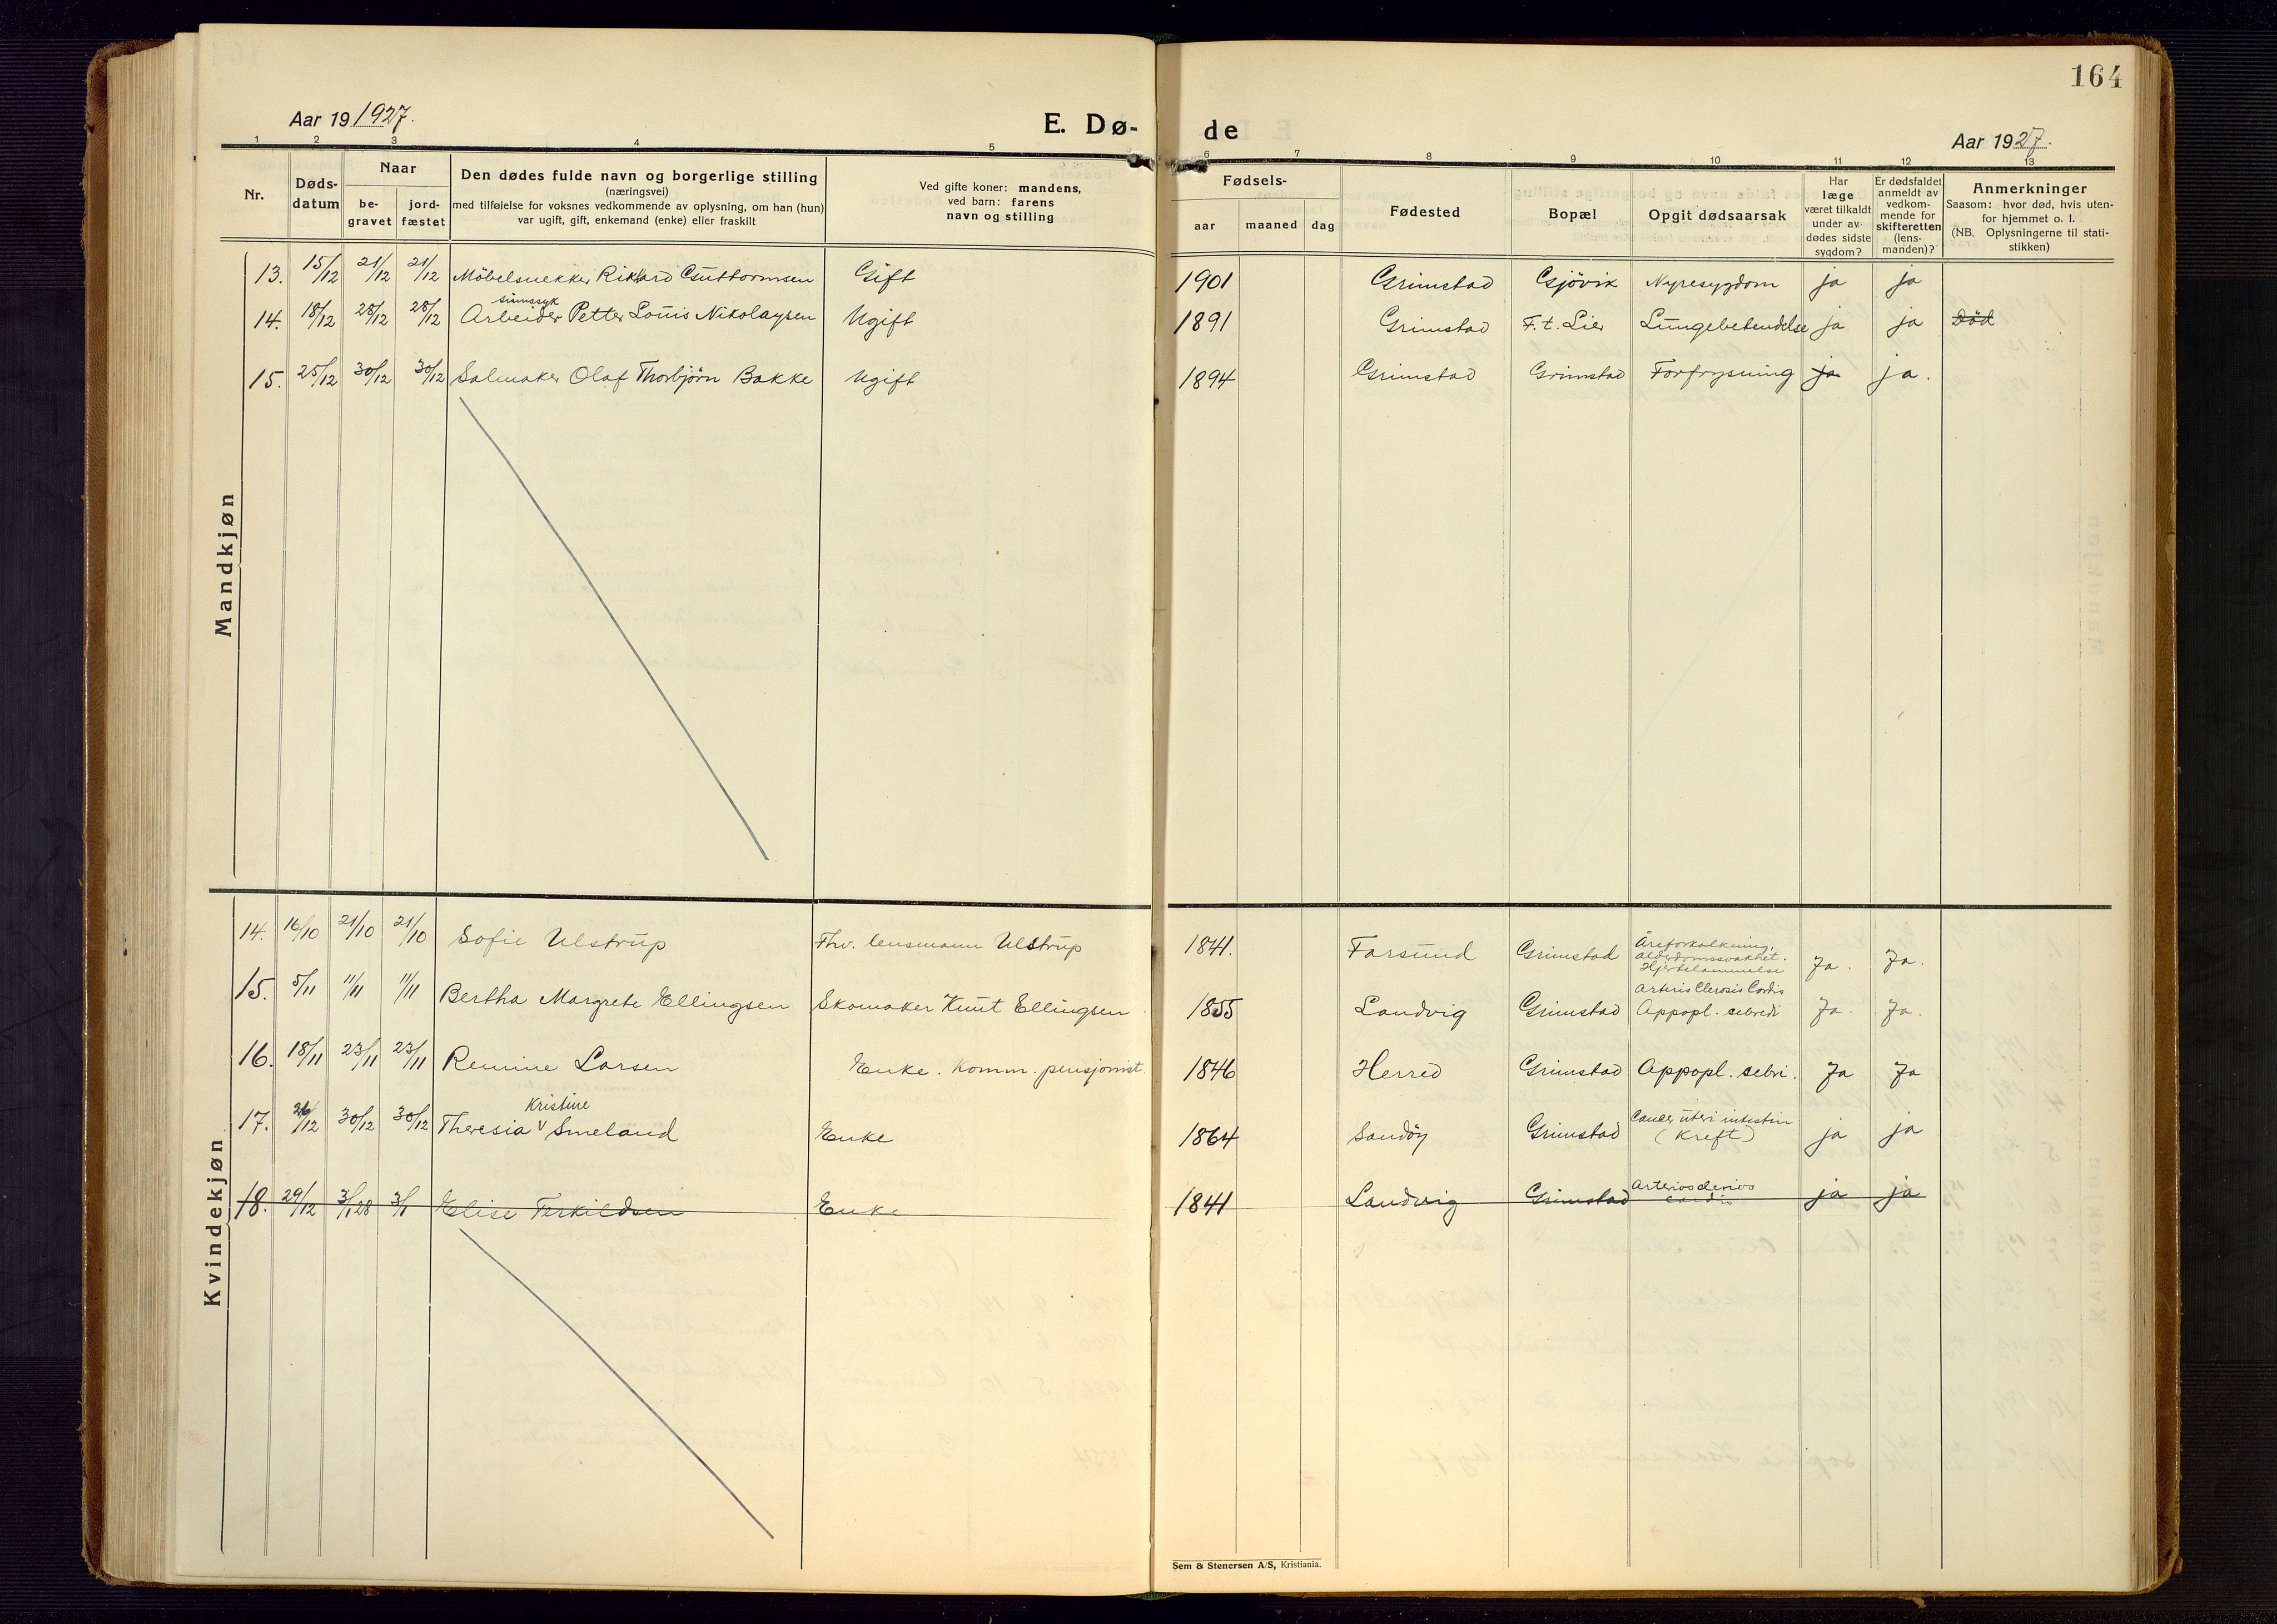 164
Aar 19 1927.
E. Dø-
de
Aar 1927.
1 2 3 4 5 6 7 8 9 10 11 12 13
Nr.
Døds-
datum
Naar
be-
gravet
jord-
fæstet
Den dødes fulde navn og borgerlige stilling
(næringsvei)
med tilføielse for voksnes vedkommende av oplysning, om han (hun)
var ugift, gift, enkemand (enke) eller fraskilt
Ved gifte koner: mandens,
ved barn: farens
navn og stilling
Fødsels-
aar
maaned
dag
Fødested
Bopæl
Opgit dødsaarsak
Har
læge
været tilkaldt
under av-
dødes sidste
sygdom?
Er dødsfaldet
anmeldt av
vedkom-
mende for
skifteretten
(lens-
manden)?
Anmerkninger
Saasom: hvor død, hvis uten-
for hjemmet o. l.
(NB. Oplysningerne til stati-
stikken)
Mandkjøn
13. 15/12 21/12 21/12 Möbelsnekker Rikhard Guttormsen Gift 1901 Grimstad Gjövik Nyresygdom ja ja
sinnssyk
14. 18/12 28/12 28/12 Arbeider Petter Louis Nikolaysen Ugift 1891 Grimstad F.t. Lier Lungebetendelse ja ja Död
15. 25/12 30/12 30/12 Salmaker Olaf Thorbjörn Bakke Ugift 1894 Grimstad Grimstad Forfrysning ja ja.
Kvindekjøn
14. 16/10 21/10 21/10 Sofie Ulstrup Fhv. lensmann Ulstrup 1841. Farsund Grimstad Åreforkalkning, Alderdomssvakhet. Hjertelammelse Ja. Ja.
15. 5/11 11/11 11/11 Bertha Margrete Ellingsen Skomaker Knut Ellingsen 1855 Landvig Grimstad Arteris Clerosis Cordis Appopl. cebredi Ja. Ja.
16. 18/11 23/11 23/11 Remine Larsen Enke. Komm. pensjonist. 1846 Herred Grimstad Appopl. cebri. Ja Ja
Kristine
17. 26/12 30/12 30/12 Theresia v Smeland Enke 1864 Sandöy Grimstad Cancer uteri intestin (Kreft) ja ja
18. 29/12 3/1 28 3/1 Elise Terkildsen Enke 1841 Landvig Grimstad cordis ja ja
Sem & Stenersen A/S, Kristiania.